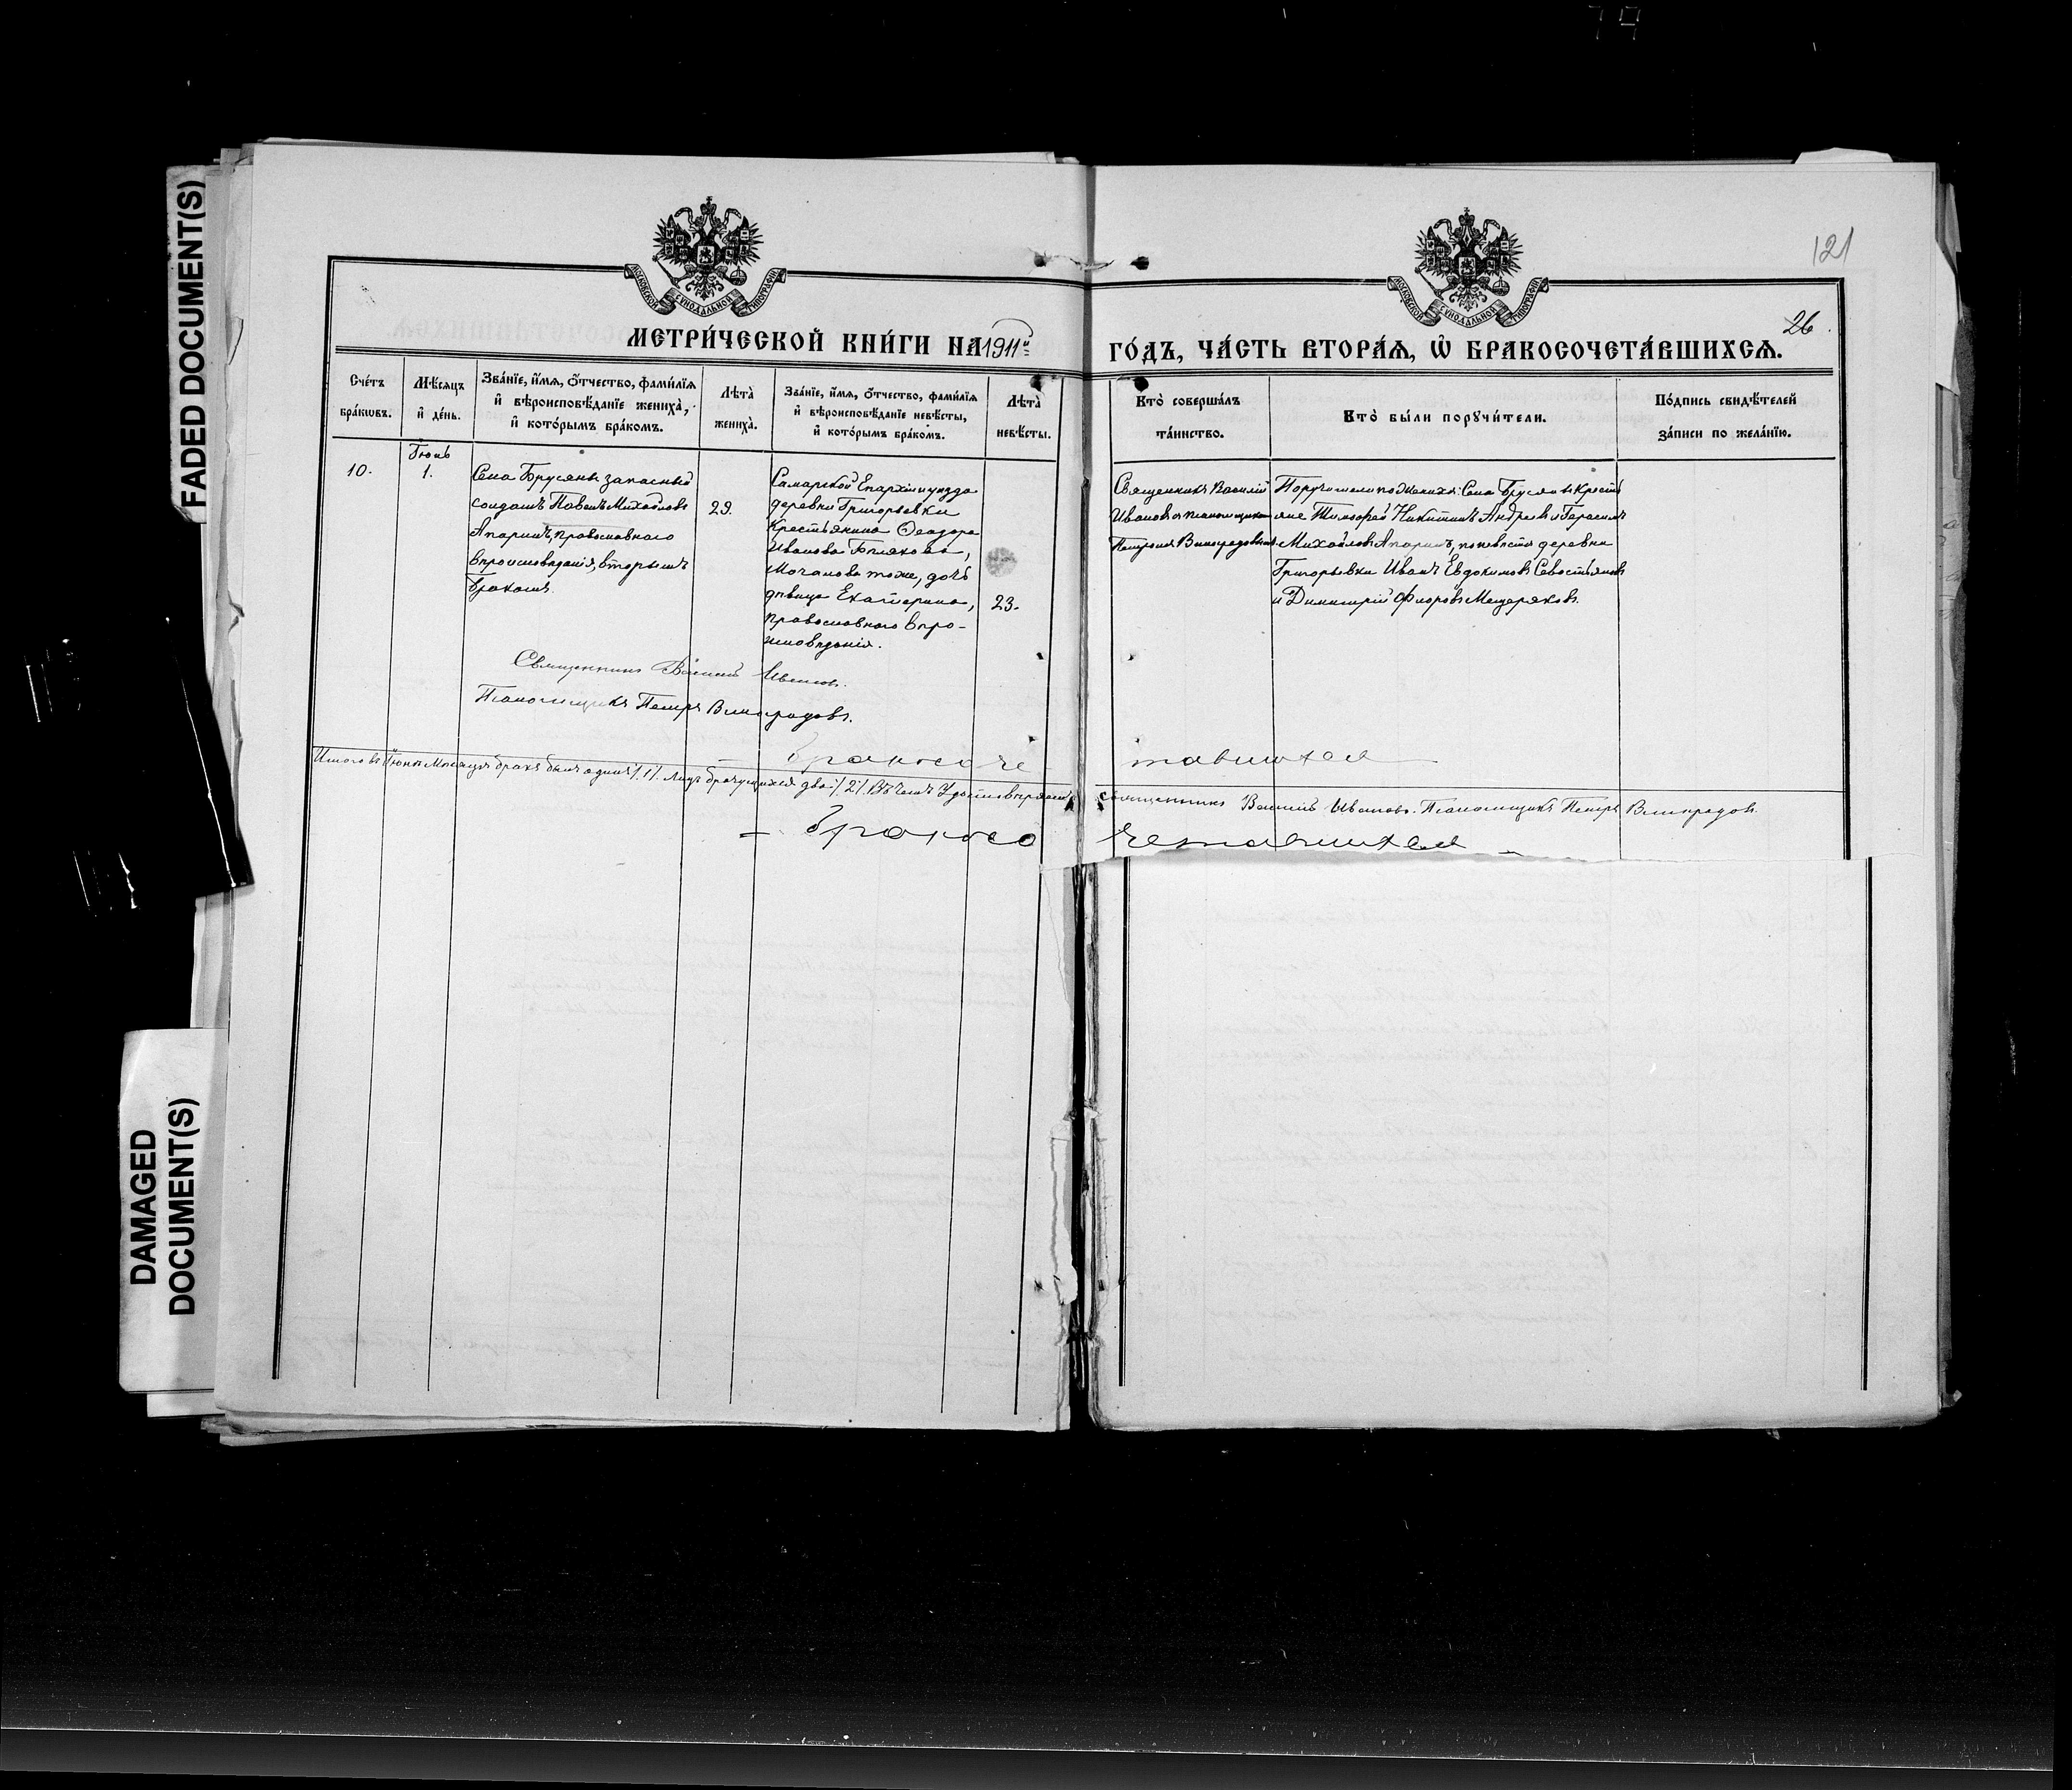 FADED DOCUMENT(S)
DAMAGED
DOCUMENT(S)
121
26.
МОСКОВСКОЙ СУНОДАЛЬНОЙ ТИПОГРАФІИ
МОСКОВСКОЙ СУНОДАЛЬНОЙ ТИПОГРАФІИ
МЕТРИ́ЧЕСКОЙ КНИ́ГИ НА 1911й ГО́ДЪ, ЧА́СТЬ ВТОРА́Ѧ, Ѽ БРАКОСОЧЕТА́ВШИХСѦ.
Сче́тъ
бра́кѡвъ.
Мѣ́сѧцъ
и҆ де́нь.
Зва́нїе, и҆́мѧ, ѻ҆́тчество, фами́лїѧ
и҆ вѣроисповѣ́данїе жениха̀,
и҆ кото́рымъ бра́комъ.
Лѣта̀
жениха̀.
Зва́нїе, и҆́мѧ, ѻ҆́тчество, фами́лїѧ
и҆ вѣроисповѣ́данїе невѣ́сты,
и҆ кото́рымъ бра́комъ.
Лѣта̀
невѣ́сты.
Кто̀ соверша́лъ
та́инство.
Кто̀ бы́ли порꙋчи́тели.
По́дпись свидѣ́телей
за́писи по жела́нїю.
10.
Іюнь
1.
Села Брусянъ запасный
солдатъ Павелъ Михайловъ
Апаринъ, православнаго
вѣроисповѣданія, вторымъ
бракомъ.
29.
Самарской Епархіи и уѣзда
деревни Григорьевки
Крестьянина Ѳеодора
Иванова Бѣлякова,
Мочалова тоже, дочь
дѣвица Екатерина,
православнаго вѣро-
исповѣданія.
23.
Священникъ Василій
Ивановъ и псаломщикъ
Петромъ Виноградовымъ
Поручители по женихѣ: Села Брусянъ Кресть
яне Тимофей Никитинъ Андреевъ и Герасимъ
Михайловъ Апаринъ, по невѣстѣ деревни
Григорьевки Иванъ Евдокимовъ Севостьяновъ
и Димитрій Флоровъ Мещеряковъ.
Священникъ Василій Ивановъ.
Псаломщикъ Петръ Виноградовъ.
бракосоче тавшихся
Итого въ Іюнѣ Мѣсяцѣ бракъ былъ одинъ /1/. Лицъ брачущихся два: /2/. Въ чемъ Удостовѣряемъ Священникъ Василій Ивановъ. Псаломщикъ Петръ Виноградовъ.
бракосо четавшихся